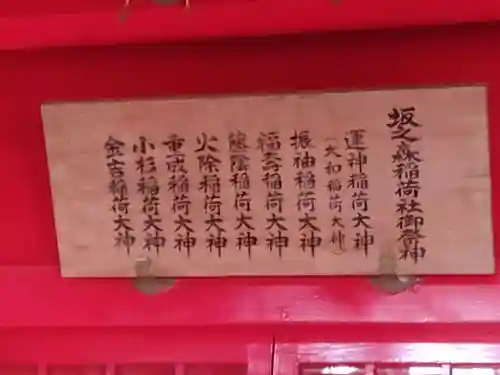 坂之森稲荷社御祭神
運神稲荷大神
(大和稲荷大神)
振袖稲荷大神
福寿稲荷大神
熊陰稲荷大神
火除稲荷大神
重成稲荷大神
小杉稲荷大神
金吉稲荷大神